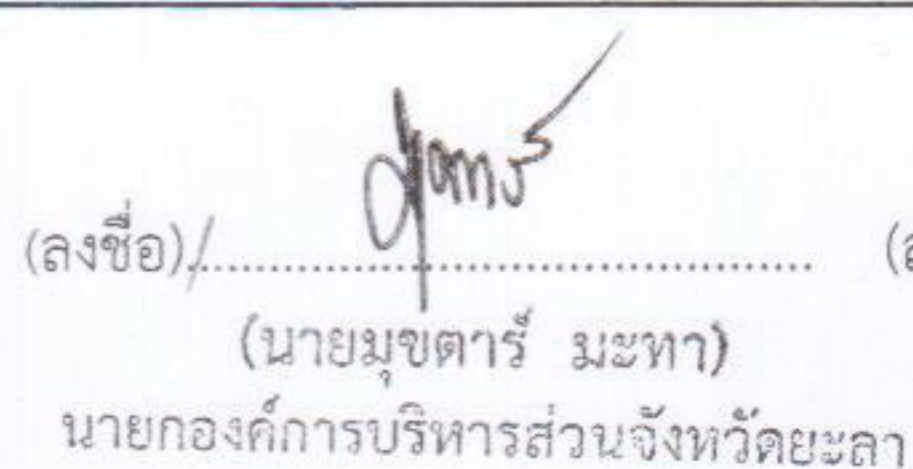 (ลงชื่อ)/.................................... (ล
(นายมุขตาร์ มะทา)
นายกองค์การบริหารส่วนจังหวัดยะลา